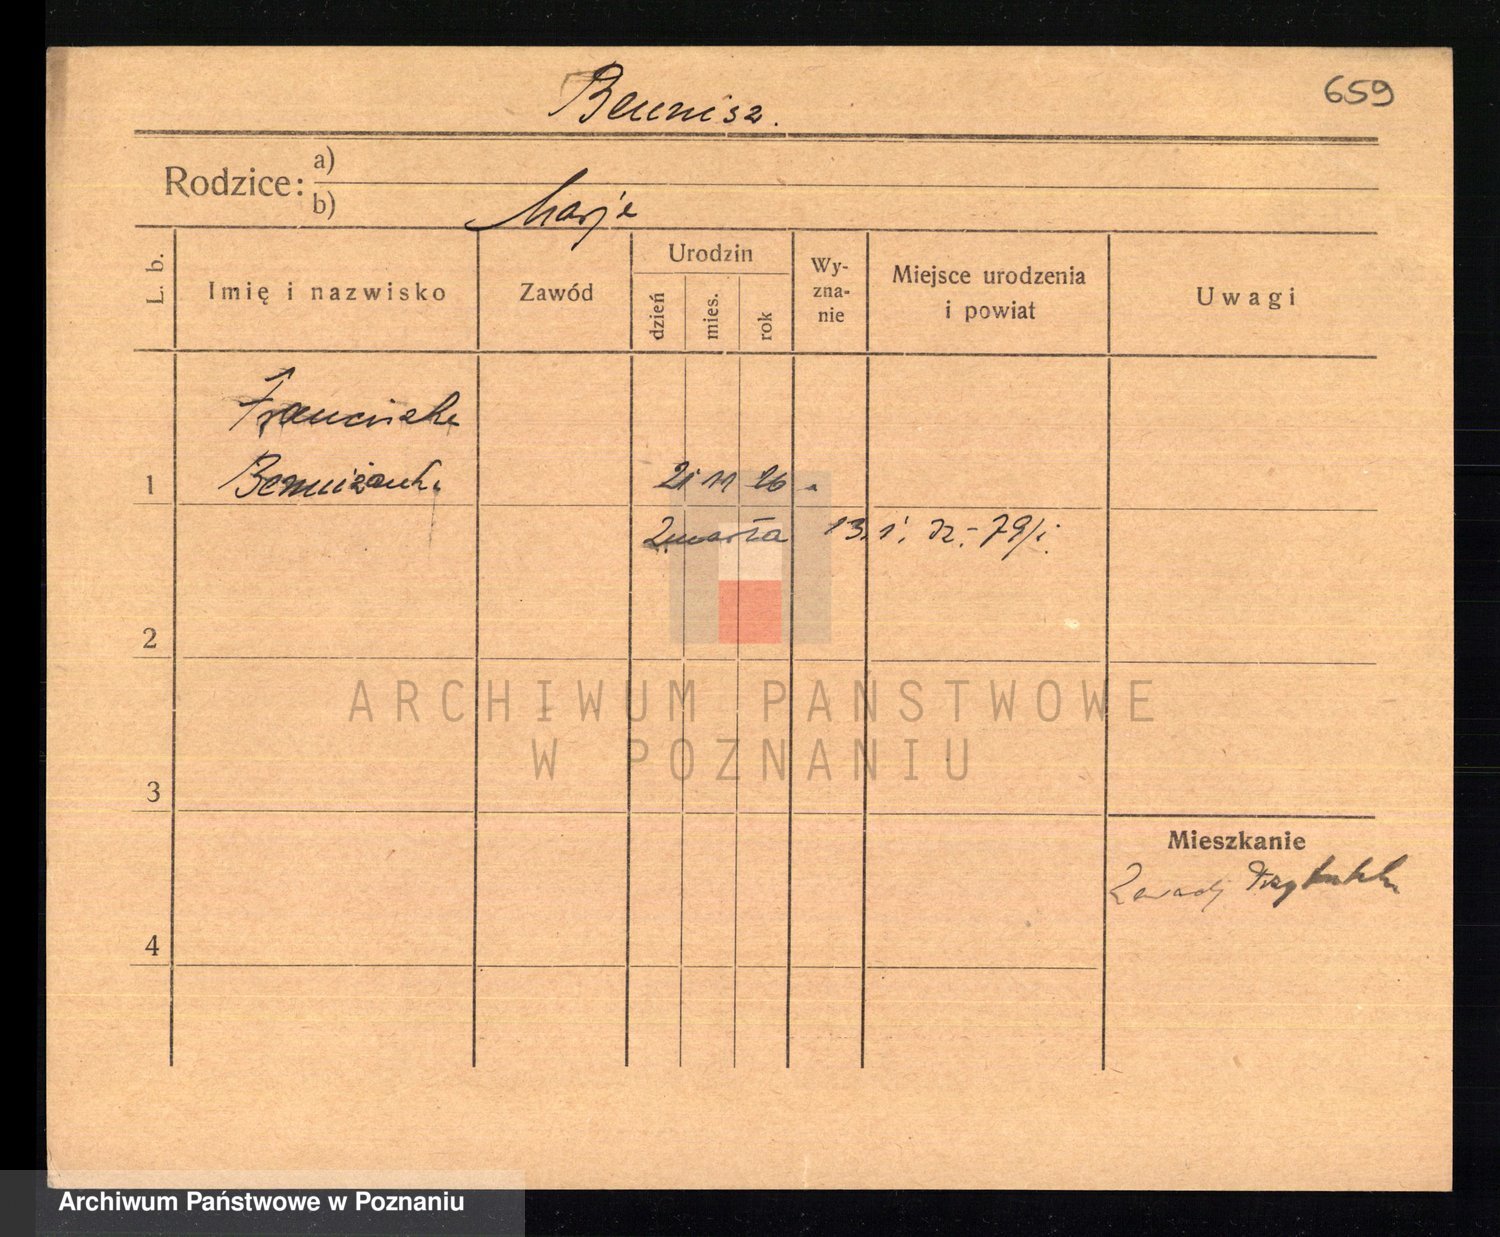 659
Bennisz.
Rodzice: a)
b) Marje
L. b.
Imię i nazwisko
Zawód
Urodzin
dzień
mies.
rok
Wy-
zna-
nie
Miejsce urodzenia
i powiat
Uwagi
Franciszka
1 21 11 26
Zmarła 13. 1.
2
3
4
Mieszkanie
Zawady
ARCHIWUM PAŃSTWOWE
W POZNANIU
Archiwum Państwowe w Poznaniu